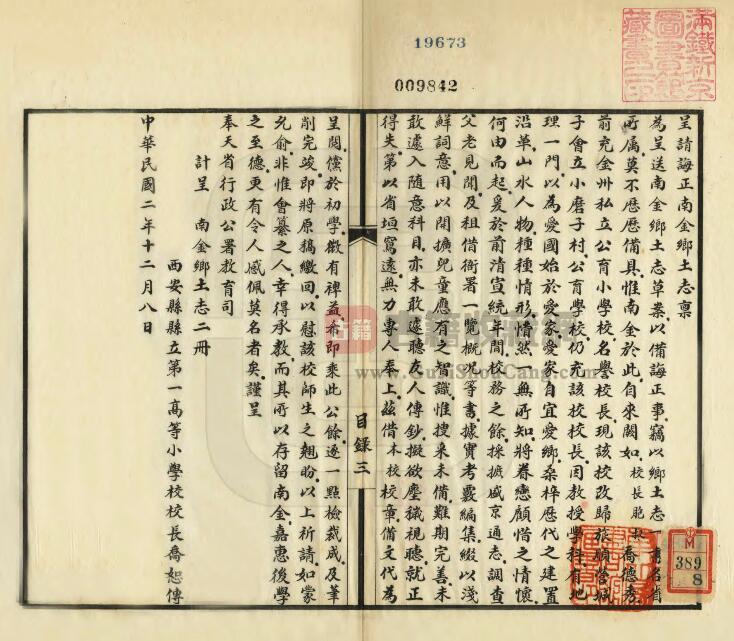 19673
009842
滿鐵新京圖書館藏書之印
呈請誨正南金鄉土志禀
為呈送南金鄉土志草案以備誨正事竊以鄉土志一書各省
所屬莫不歷歷備具惟南金於此自來闕如校長胞叔喬德秀
前充金州私立公育小學校名譽校長現該校改歸旅順營城
子會立小磨子村公育學校仍充該校校長因教授學科有地
理一門以為愛國始於愛家愛家自宜愛鄉桑梓歷代之建置
沿革山水人物種種情形懵然一無所知將眷戀顧惜之情懷
何由而起爰於前清宣統年間校務之餘採摭盛京通志調查
父老見聞及租借衙署一覽概況等書據實考覈編集綴以淺
鮮詞意用以開擴兒童應有之智識惟搜采未備難期完善未
敢遽入隨意科目亦未敢遽聽友人傳鈔擬欲塵穢視聽就正
得失第以省垣寫遠無力專人奉上茲借本校校章借文代為
呈閱儻於初學微有裨益希即乘此公餘逐一點檢裁成及筆
削完竣即將原稿繳回以慰該校師生之翹盼以上祈請如蒙
允俞非惟會纂之人幸得承教而其所以存留南金嘉惠後學
之至德更有令人感佩莫名者矣謹呈
奉天省行政公署教育司
計呈 南金鄉土志二冊
西安縣縣立第一高等小學校校長喬恕傳
中華民國二年十二月八日
目錄三
M
389
8
古籍
www.GuJiShouCang.com